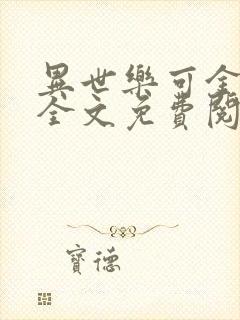 異世樂可全
全文免費閱
寶德